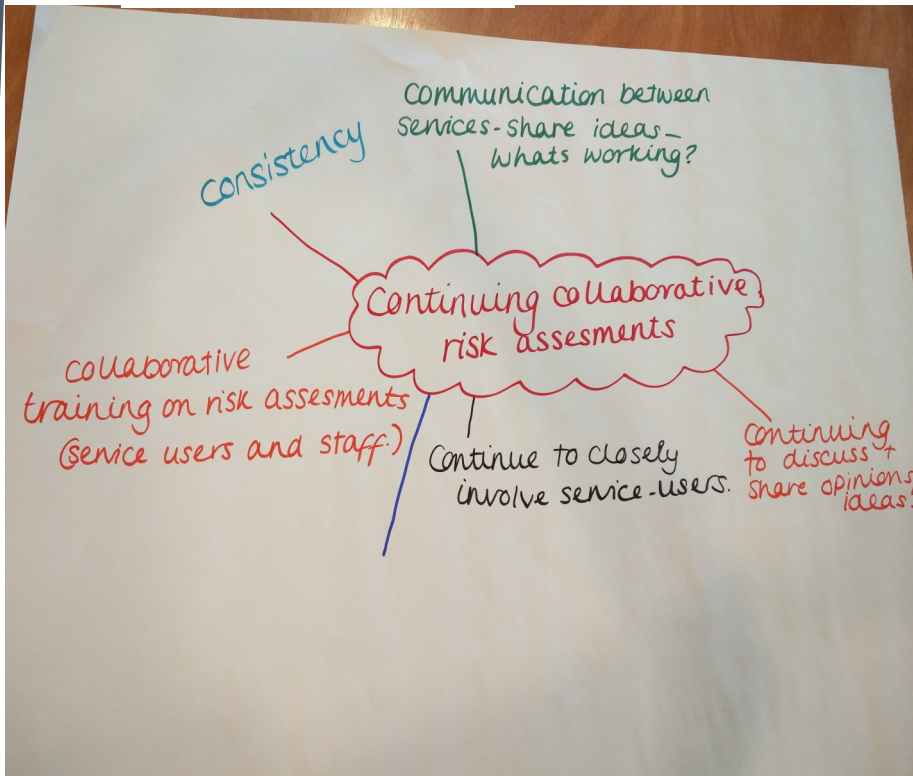 Communication between
services-share ideas-
whats working?
Consistency
Continuing collaborative
risk assesments
collaborative
training on risk assesments
(service users and staff.)
Continue to closely
involve service-users.
Continuing
to discuss +
share opinions
ideas.